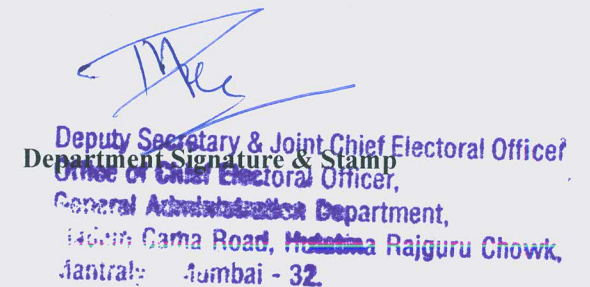 Deputy Secretary & Joint Chief Electoral Officer
Department Signature & Stamp
Office of Chief Electoral Officer,
General Administration Department,
Cama Road, Rajguru Chowk,
- 32.